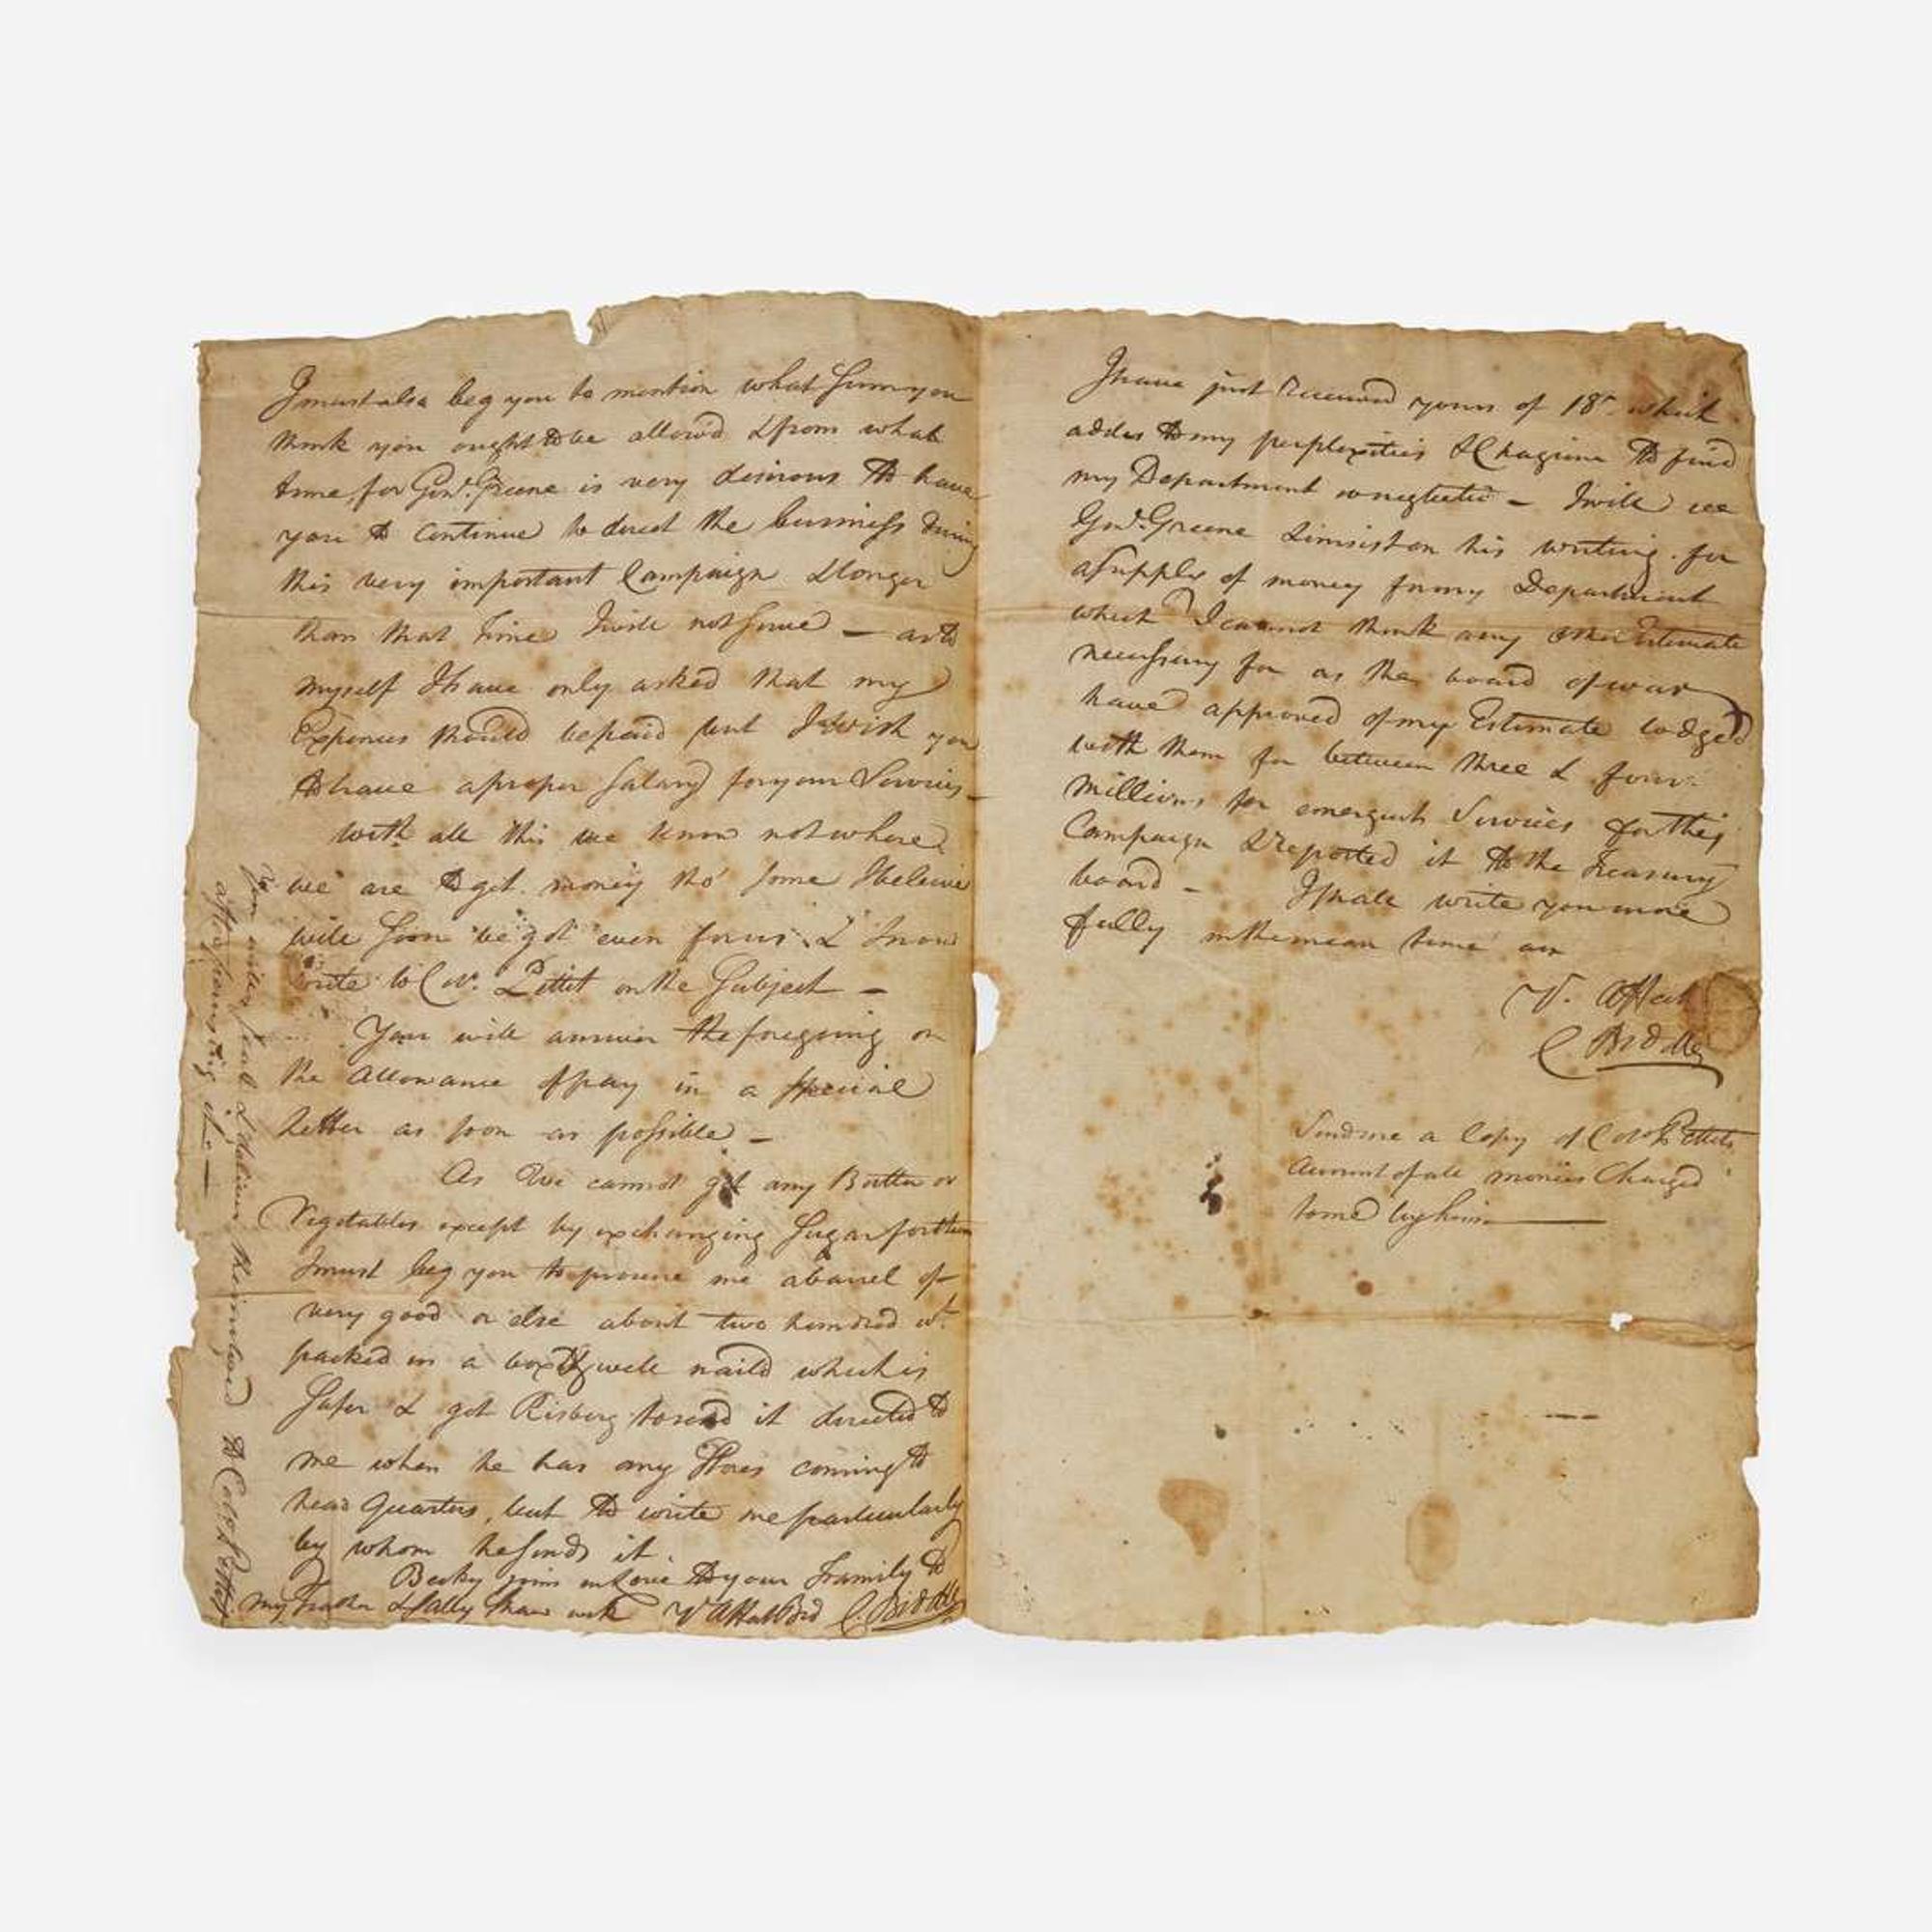 I must also beg you to mention what Sum you
think you ought to be allow'd & from what
time, for Genl. Greene is very desirous to have
you to Continue to direct the business during
this very important Campaign & longer
than that time I will not serve — as to
myself I have only asked that my
Expences should be paid but I wish you
to have a proper Salary for your Services —
with all this we know not where
we are to get money tho' some I believe
will soon be got even for us & I now
write to Col. Pettit on the Subject —
You will answer the foregoing on
the allowance of pay in a special
Letter as soon as possible —
As we cannot get any Butter or
Vegetables except by exchanging Sugar for them
I must beg you to procure me a barrel of
very good or else about two hundred wt.
packed in a box well naild which is
Safer & get Risberg to send it directed to
me when he has any Stores coming to
head Quarters, but to write me particularly
by whom he sends it
Becky joins in Love to your Family to
my Father & Sally Shaw with Yr Aff. Bro. C. Biddle
You will seal & deliver the inclosed to Col. Pettit
after perusing it —
I have just received yours of 18th which
addes to my perplexities & Chagrine to find
my Department so neglected — I will see
Genl. Greene & insist on his writing for
a Supply of money for my Department
which I cannot think any other Estimate
necessary for as the board of war
have approved of my Estimate lodged
with them for between three & four
Millions for emergent Services for this
Campaign & reported it to the Treasury
board — I shall write you more
fully in the mean time am
Yr. Aff.
C Biddle
Send me a Copy of Col. Pettits
Account of all monies Charged
to me by him —